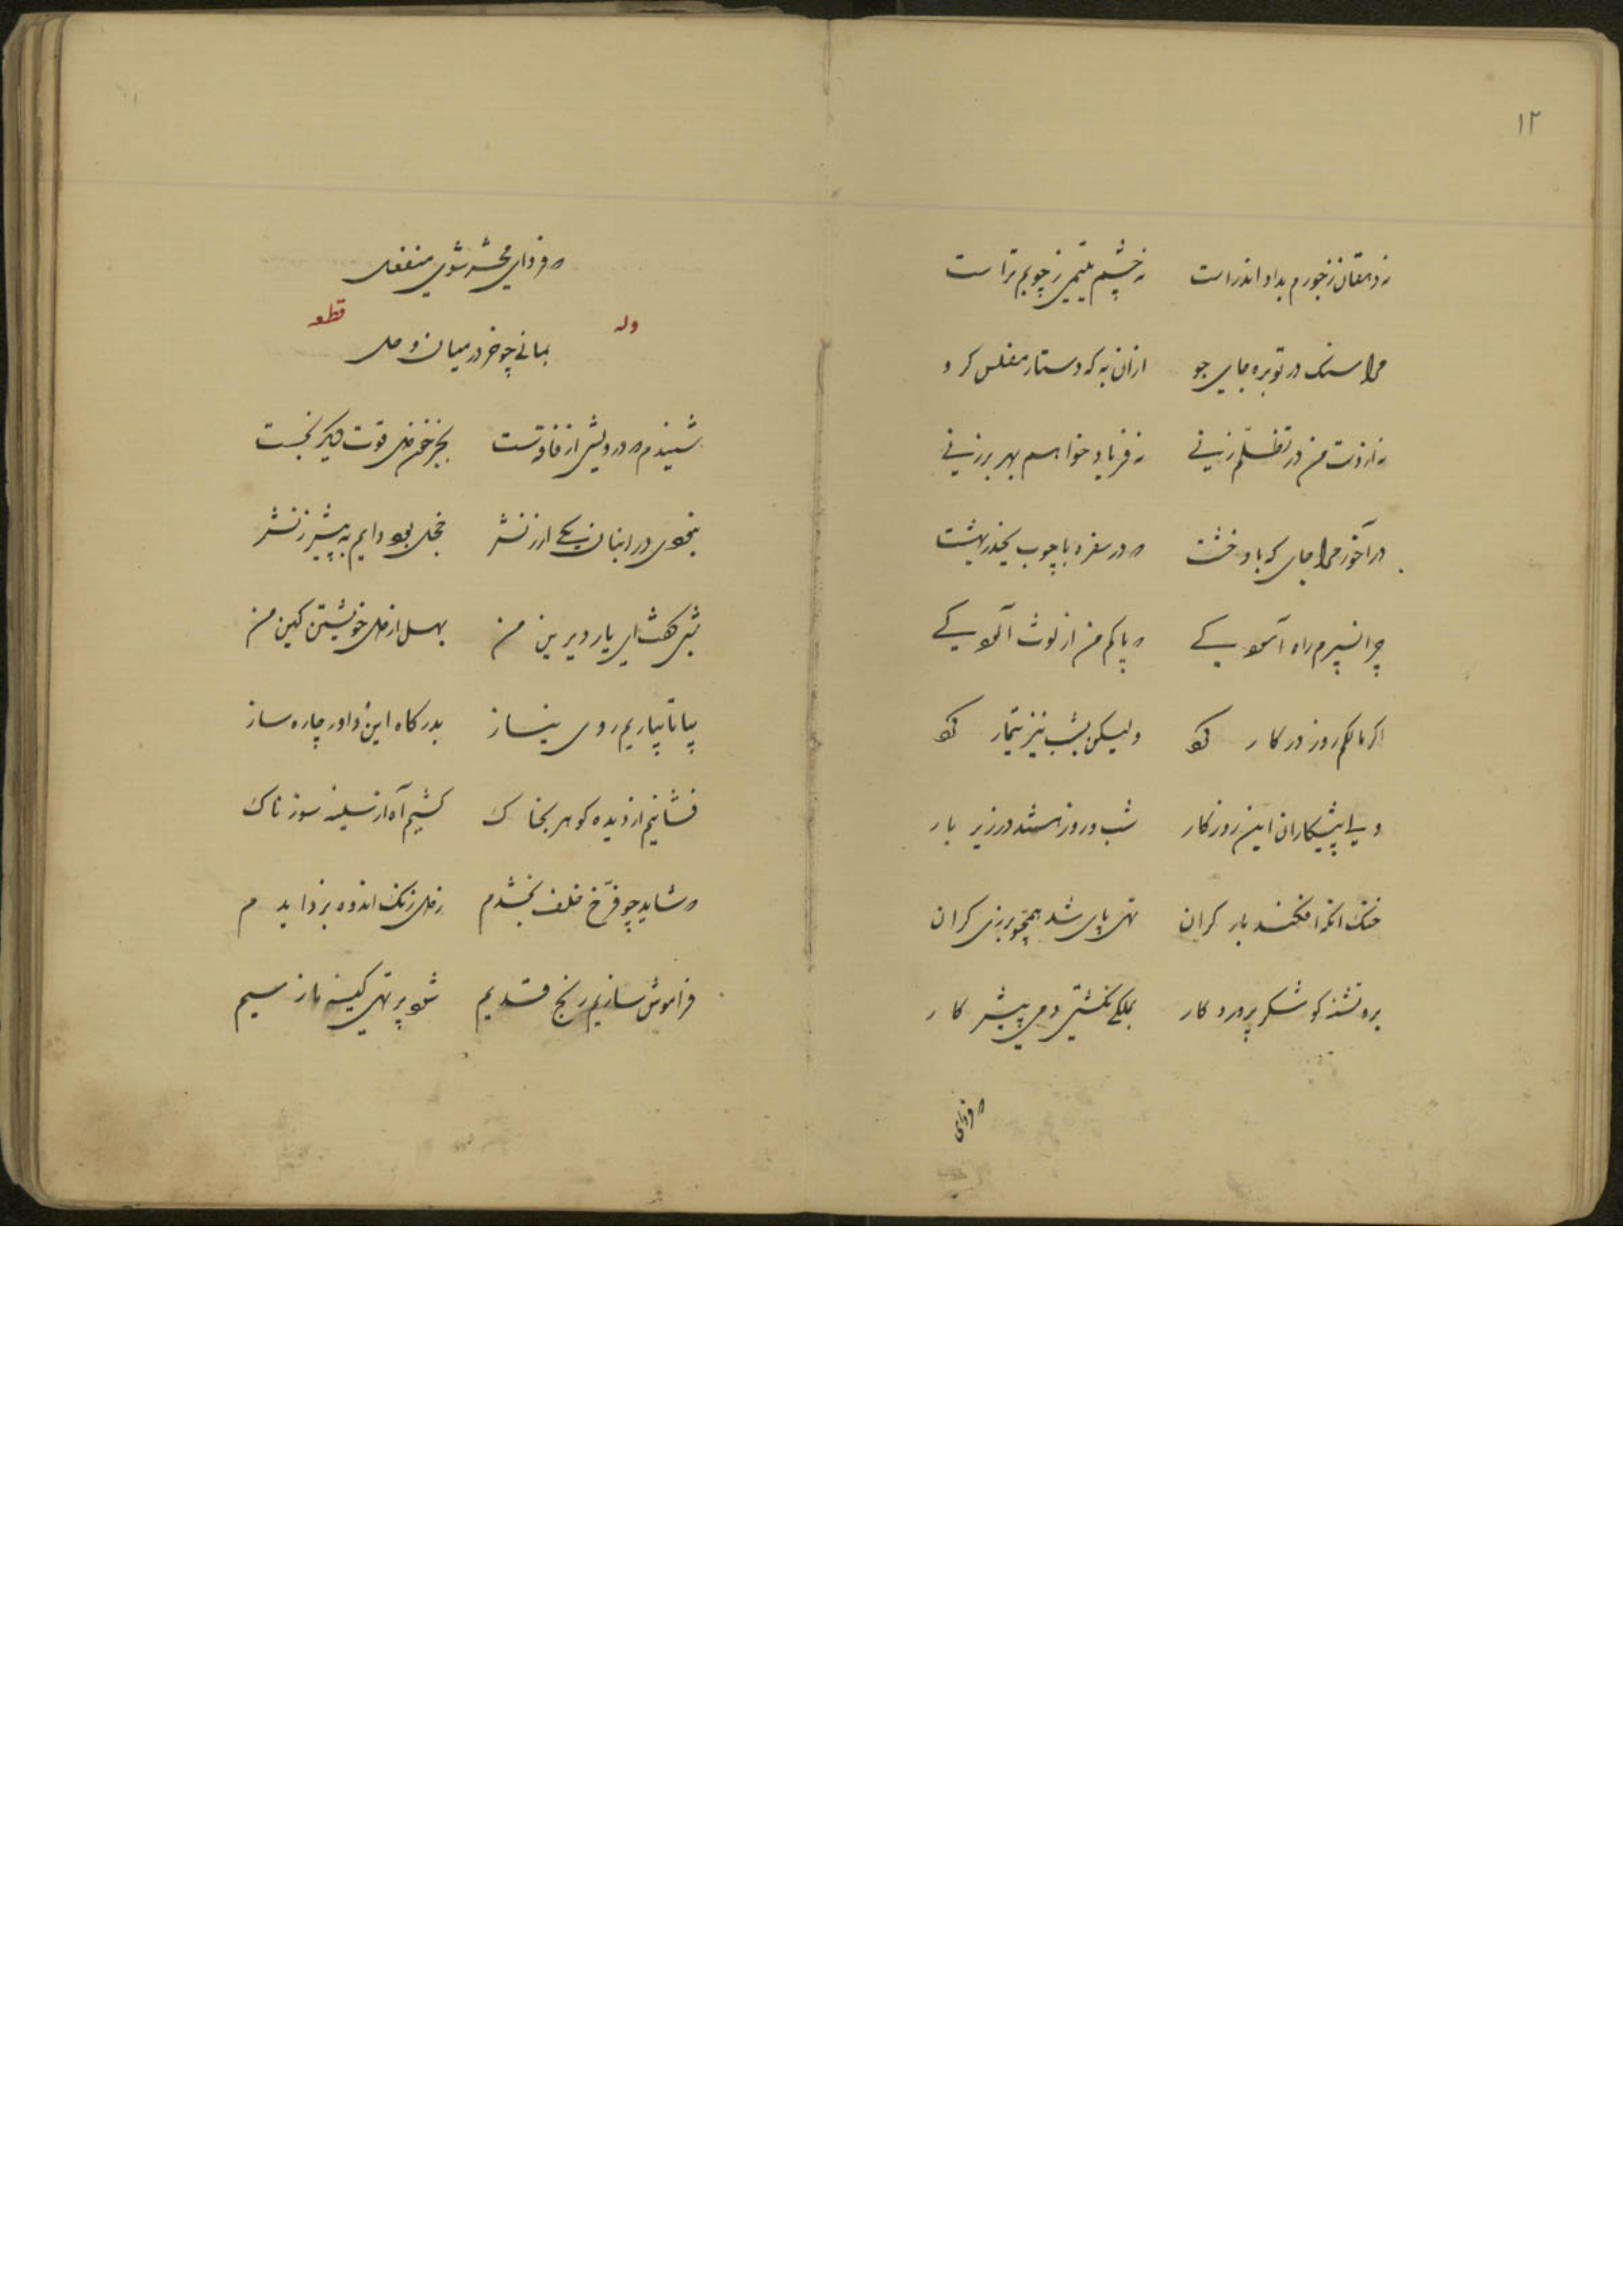 ۱۲
نه دهقان ز جورم بداد اندر است نه چشم یتیمی ز چوبم تر است
مرا سنک در توبره جای جو ازان به که دستار مفلس کرو
نه از دست من در تظلّم زنی نه فریاد خواهم بهر برزنی
در آخور مرا جای که باد خشت نه در سفره با چوب
چرا نسپرم راه آسودکی نه پاکم من از لوث آلودکی
اکر مالکم روز در کار کو ولیکن بشب نیز تیمار کو
ولی پیشکاران این روزکار شب و روز هستند در زیر بار
خنک آنکه افکند بار کران تهی پای شد همچو برزی کران
برو تشنه کو شکر پروردکار بملکی نکشتی دمی پیشکار
نه فردای
نه فردای محشر شوی منفعل
بمانی چو خر در میان وحل
وله قطعه
شنیدم که درویشی از فاقه سست بجز خون دل قوت دیکر نجست
بنودی در انبان یکی ارزنش خجل بود دایم به پیش زنش
شبی کفت ای یار دیرین من بهل از دل خویشتن کین من
بیا تا بیاریم روی نیاز بدرکاه این داور چاره ساز
فشانیم از دیده کوهر بخاک کشیم آه از سینه سوزناک
که شاید چو فرّخ خلف بخشدم ز دل زنک اندوه بزدایدم
فراموش سازیم رنج قدیم شود پر تهی کیسه ما ز سیم